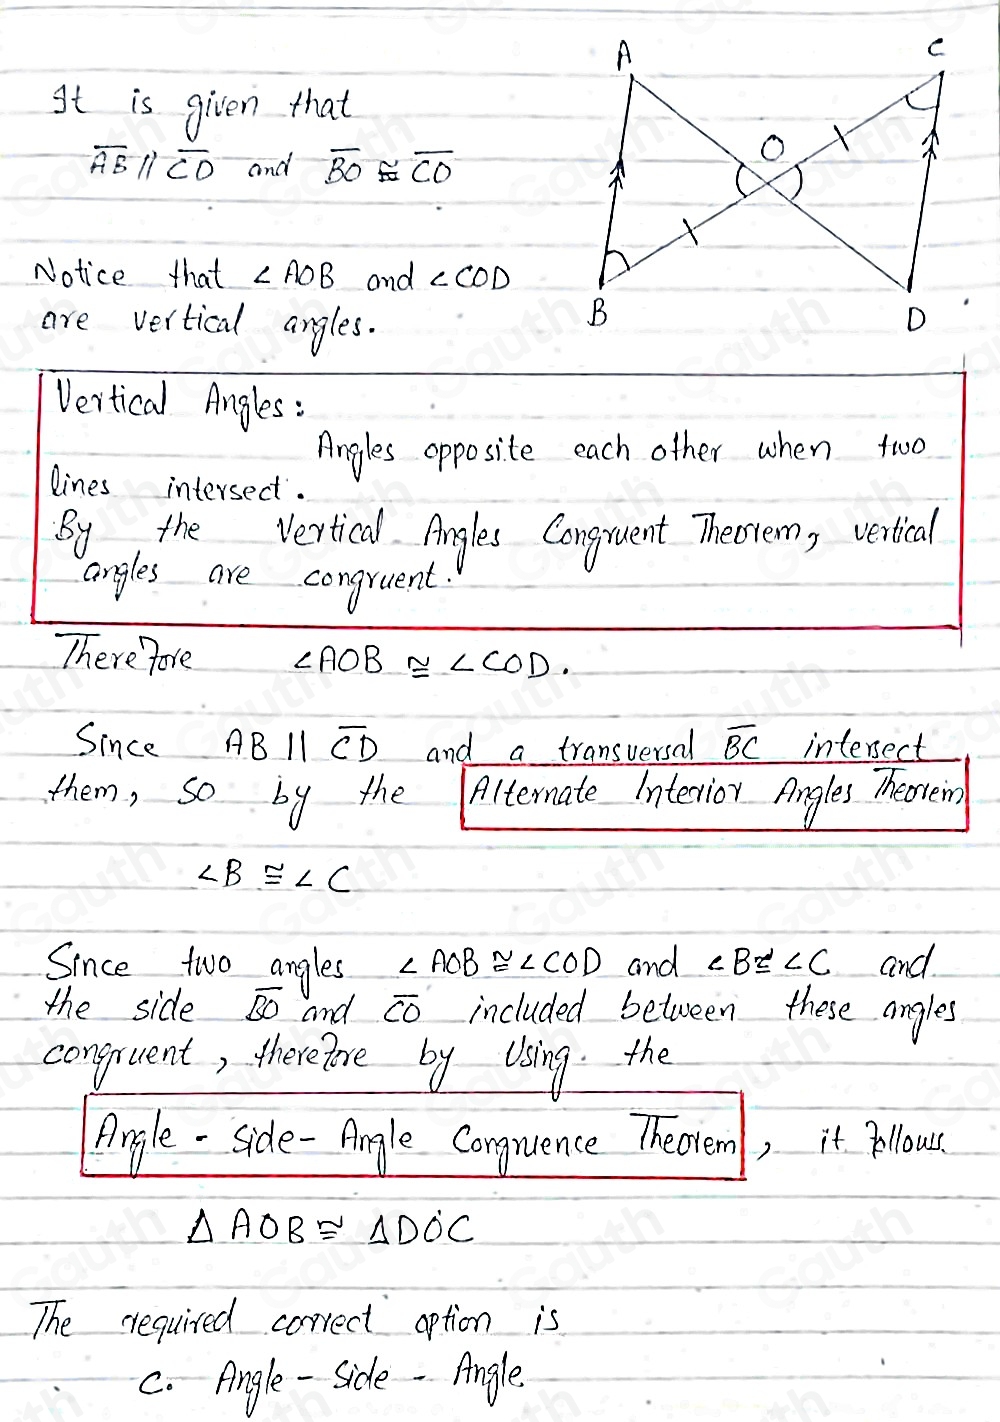 It is given that
AB || CD and BO ≅ CO
A
C
O
B
D
Notice that ∠AOB and ∠COD
are vertical angles.
Vertical Angles:
Angles opposite each other when two
lines intersect.
By the Vertical Angles Congruent Theorem, vertical
angles are congruent.
Therefore ∠AOB ≅ ∠COD.
Since AB || CD and a transversal BC intersect
them, so by the Alternate Interior Angles Theorem
∠B ≅ ∠C
Since two angles ∠AOB ≅ ∠COD and ∠B ≅ ∠C and
the side BO and CO included between these angles
congruent, therefore by Using the
Angle - Side - Angle Congruence Theorem, it follows.
△AOB ≅ △DOC
The required correct option is
C. Angle - Side - Angle